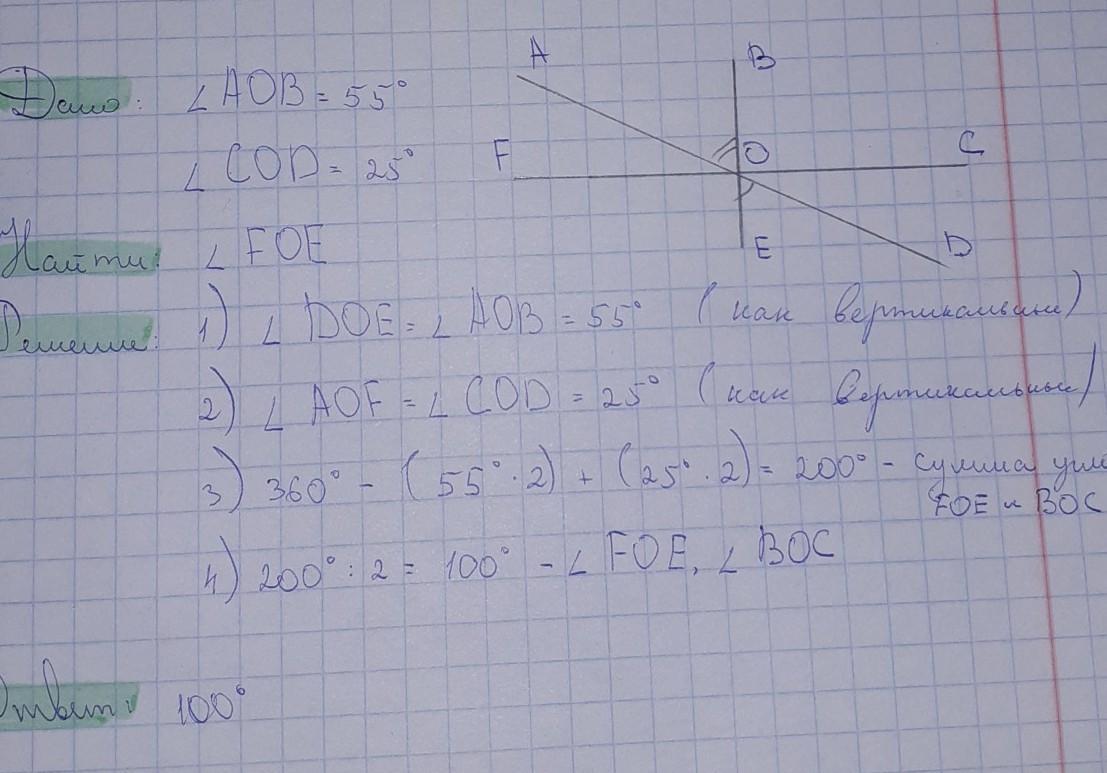 Дано: ∠AOB = 55°
∠COD = 25°
Найти: ∠FOE
Решение: 1) ∠DOE = ∠AOB = 55° (как вертикальные)
2) ∠AOF = ∠COD = 25° (как вертикальные)
3) 360° - (55° · 2) + (25° · 2) = 200° - сумма угл
FOE и BOC
4) 200° : 2 = 100° - ∠FOE, ∠BOC
Ответ: 100°
A
B
F
O
C
E
D